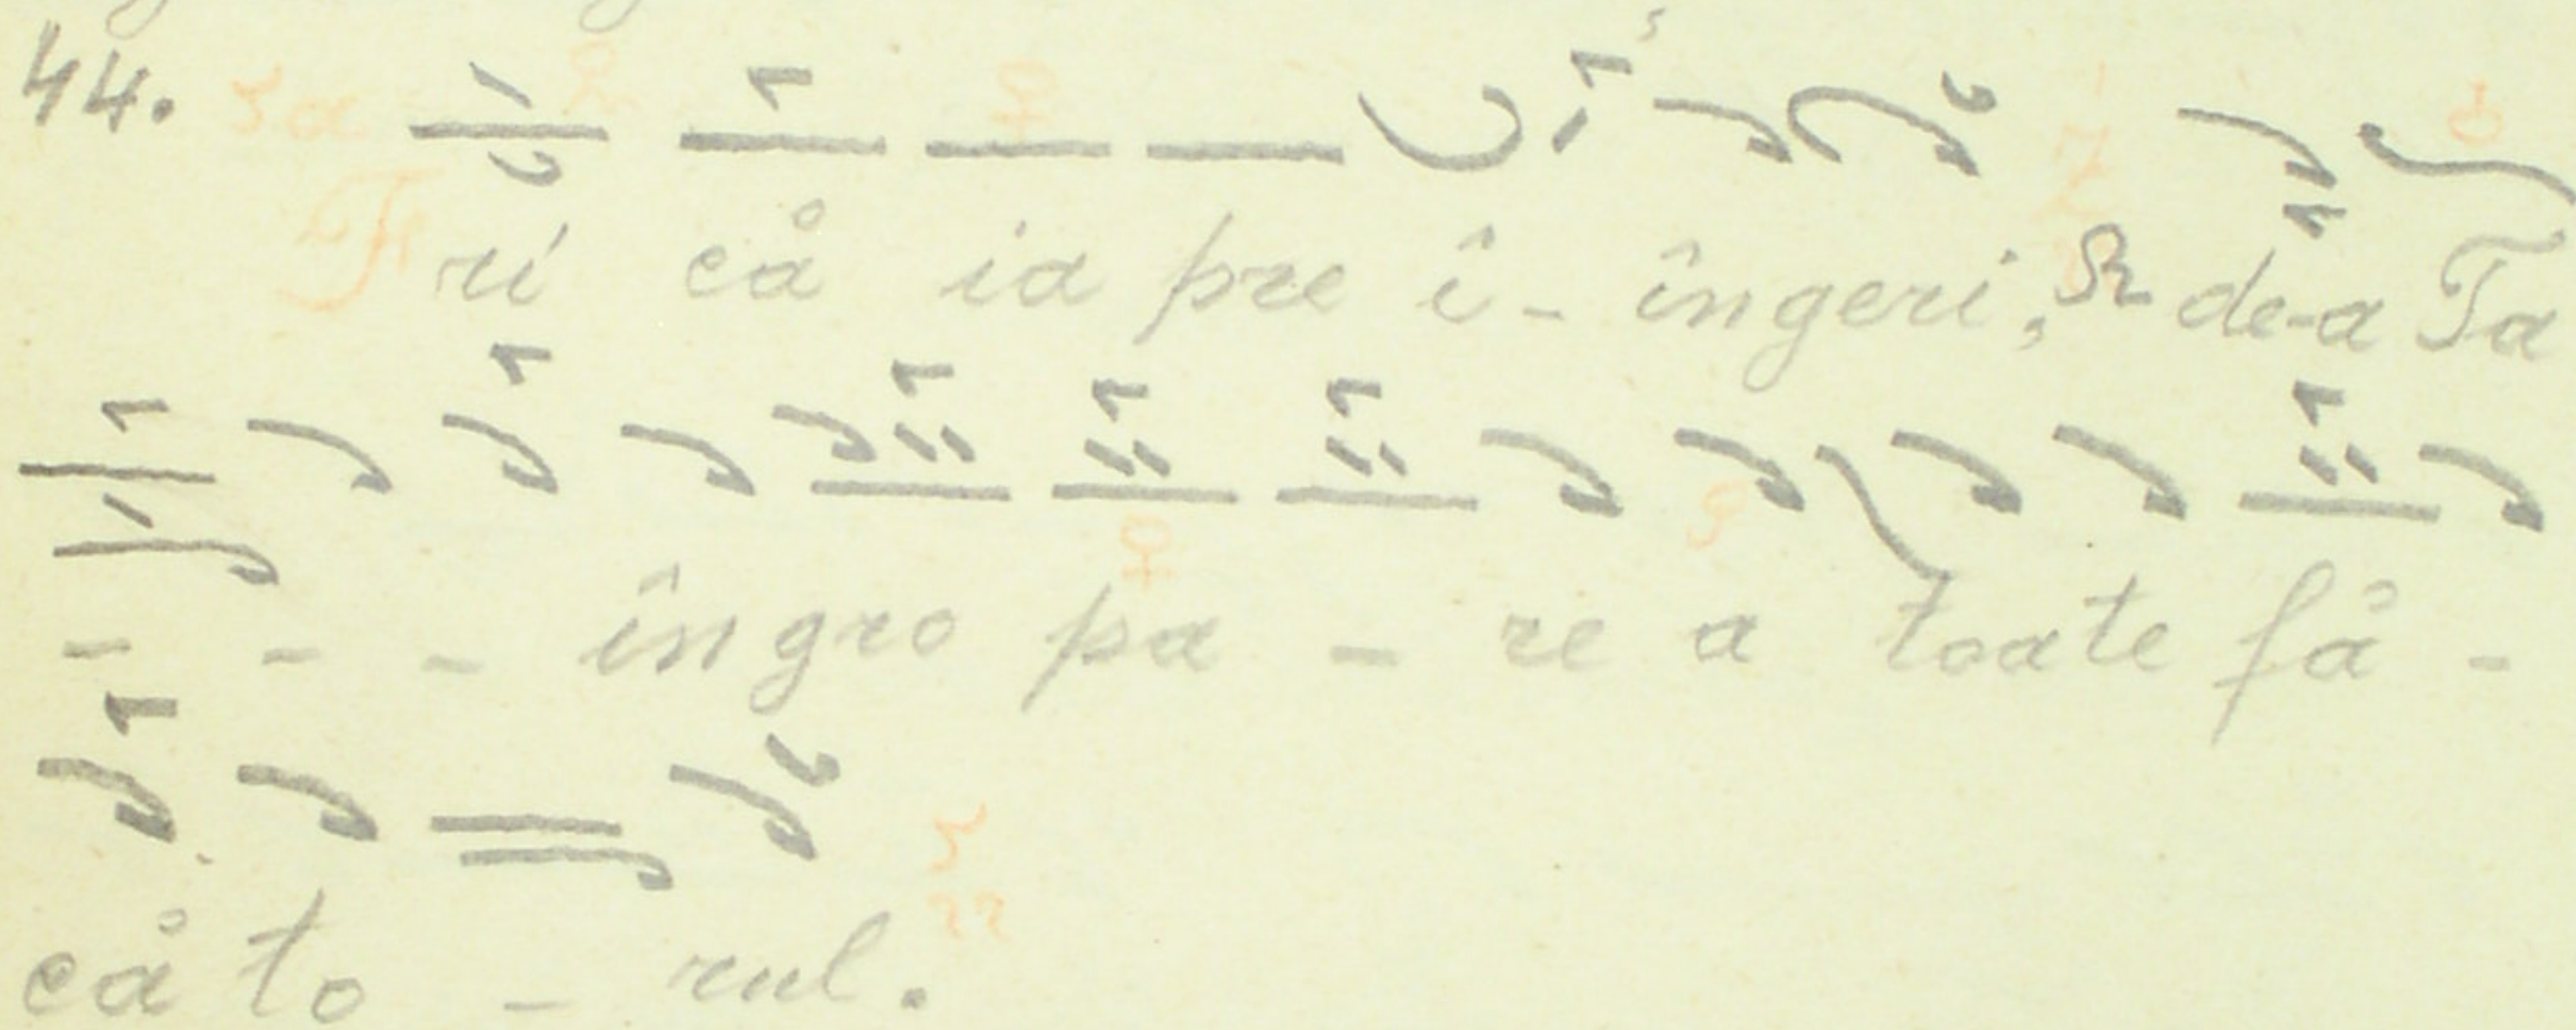 44.
Fri că ia pre î - îngeri, de-a Ta
- - - îngro pa - re a toate fă -
că to - rul.